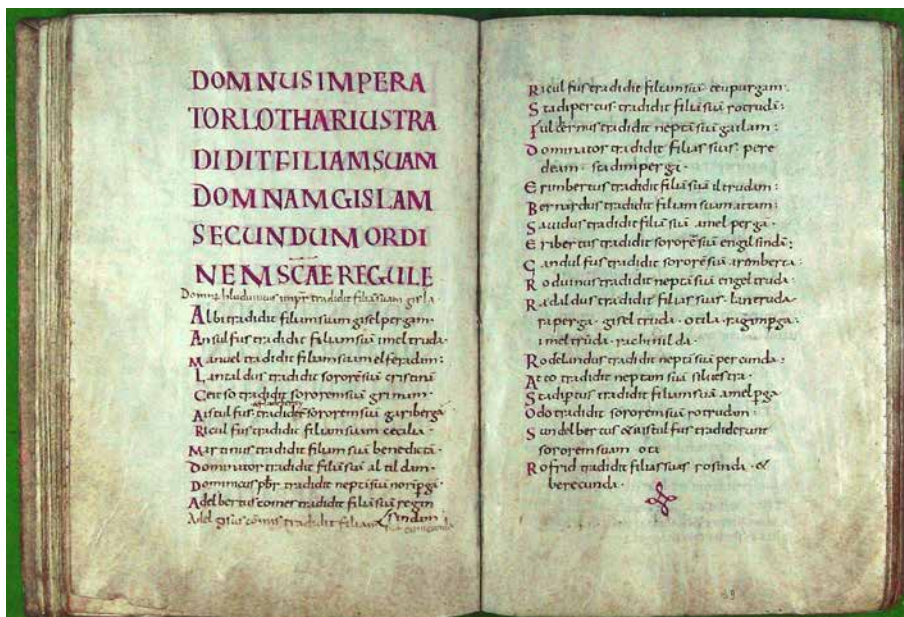 DOMNUSIMPERA
TORLOTHARIUSTRA
DIDITFILIAMSUAM
DOMNAMGISLAM
SECUNDUMORDI
NEMSCAEREGULE
tradidit filiā suam gisla
Albi tradidit filiam suam gisel pergam.
Ansulfus tradidit filiam suā imeltruda.
Manuel tradidit filiam suam elferadam:
Lantaldus tradidit sororē suā cristinā
tradidit sororem suam
Aistulfus sororem suā gariberga
Riculfus tradidit filiam suam cecilia.
Martinus tradidit filiam suā benedictā.
Dominator tradidit filiā suā altildam.
Dominicus pbr tradidit neptī suā
Adelbertus comes tradidit filiā suā regin
sindam
Adelgisus comes tradidit filiam
Riculfus tradidit filiam suā teupurgam:
Stadipertus tradidit filiā suā rotrudā:
tradidit neptā suā gailam:
Dominator tradidit filias suas. pere
deum. stadimperga.
Erimbertus tradidit filiā suā iltrudam:
Bernardus tradidit filiam suam attam:
Sauidus tradidit filiā suā amelperga.
Eribertus tradidit sororē suā engilsindā:
Gandulfus tradidit sororē suā arimberta:
Roduinus tradidit neptī suā engeltruda.
Radaldus tradidit filias suas. lantruda.
raperga. giseltruda. otila. ragimpga:
imeltruda. rachinilda.
Rodelandus tradidit neptī suā percunda:
Atto tradidit neptam suā siluestra.
Stadiptus tradidit filiam suā amelpga
Odo tradidit sororem suā rotrudam:
Sundelbertus & aistulfus tradiderunt
sororem suam ota
Rofrid tradidit filias suas rosinda. &
berecunda.